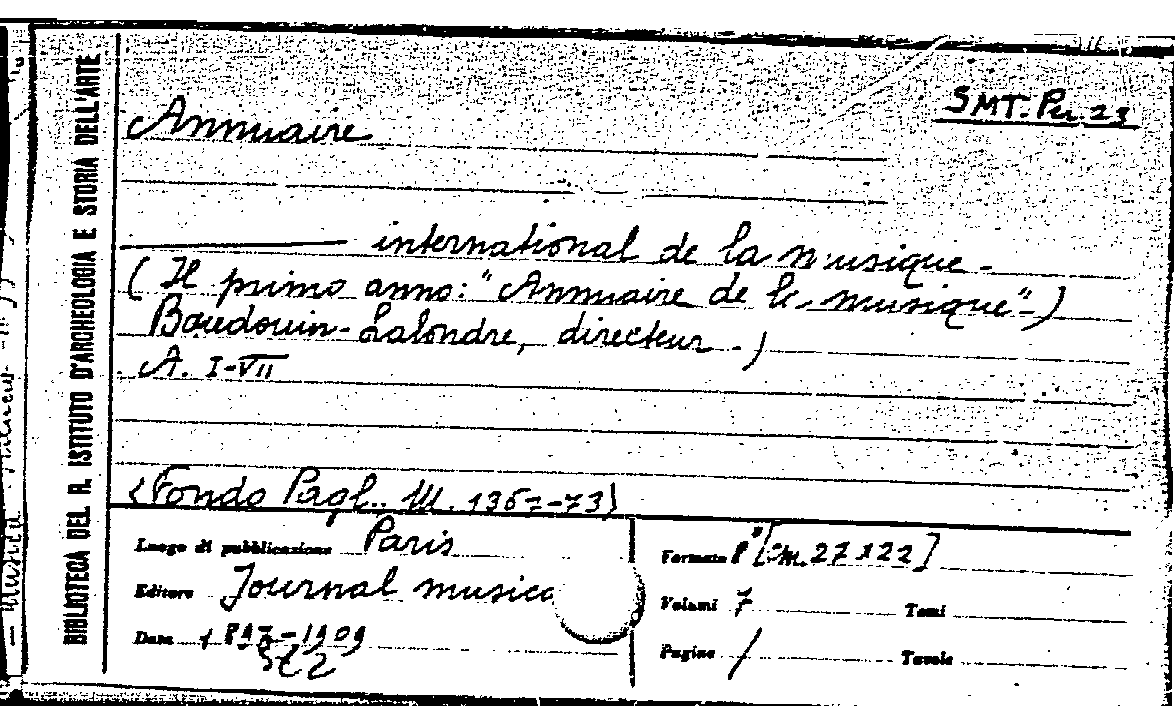 BIBLIOTECA DEL R. ISTITUTO D'ARCHEOLOGIA E STORIA DELL'ARTE
SMT. Per. 23
Annuaire
international de la musique -
( Il primo anno: "Annuaire de la musique"-)
Baudouin-Lalondre, directeur -)
A. I-VII
(Fondo Pagl., M. 1367-73)
Luogo di pubblicazione Paris
Editore Journal musica
Data 1897-1909
Formato 8° [cm. 27x22]
Volumi 7 Tomi
Pagine / Tavole